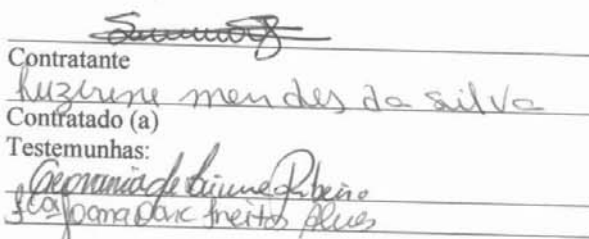 Contratante
Luzirene mendes da silva
Contratado (a)
Testemunhas:
de Ribeiro
Joana Darc freitas Alves